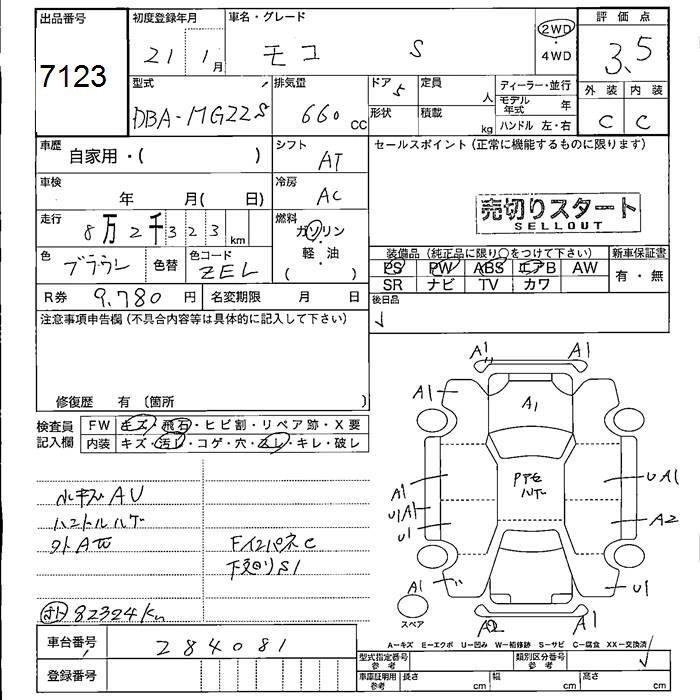 出品番号
7123
初度登録年月
21 1月
車名・グレード
モコ S
2WD
・
4WD
評価点
3.5
型式
DBA-MG22S
排気量
660 CC
ドア 5
定員 人
形状
積載 kg
ディーラー・並行
モデル年式 年
ハンドル 左・右
外装 内装
C C
車歴
自家用・( )
シフト
AT
セールスポイント(正常に機能するものに限ります)
車検
年 月( 日)
冷房
AC
売切りスタート
SELLOUT
走行
8万2千323km
燃料
ガソリン
・
軽・油
( )
色
ブラウン
色替
色コード
ZEL
装備品(純正品に限り○をつけて下さい)
PS PW ABS エアB AW
SR ナビ TV カワ
新車保証書
有・無
R券 9,780 円
名変期限 月 日
後日品
注意事項申告欄(不具合内容等は具体的に記入して下さい)
修復歴 有 〔箇所
検査員
記入欄
FW キズ・飛石・ヒビ割・リペア跡・X要
内装 キズ・汚レ・コゲ・穴・スレ・キレ・破レ
小キズAU
ハンドルハゲ
F インパネC
下廻りS1
82324Km
A1 A1
A1
A1
A1 UA1
UA1
U1 A2
A1 U1
A2
スペア
A=キズ E=エクボ U=凹み W=補修跡 S=サビ C=腐食 XX=交換済
車台番号 284081
登録番号
型式指定番号
参考
類別区分番号
参考
車庫証明用
参考
長さ cm
幅 cm
高さ cm